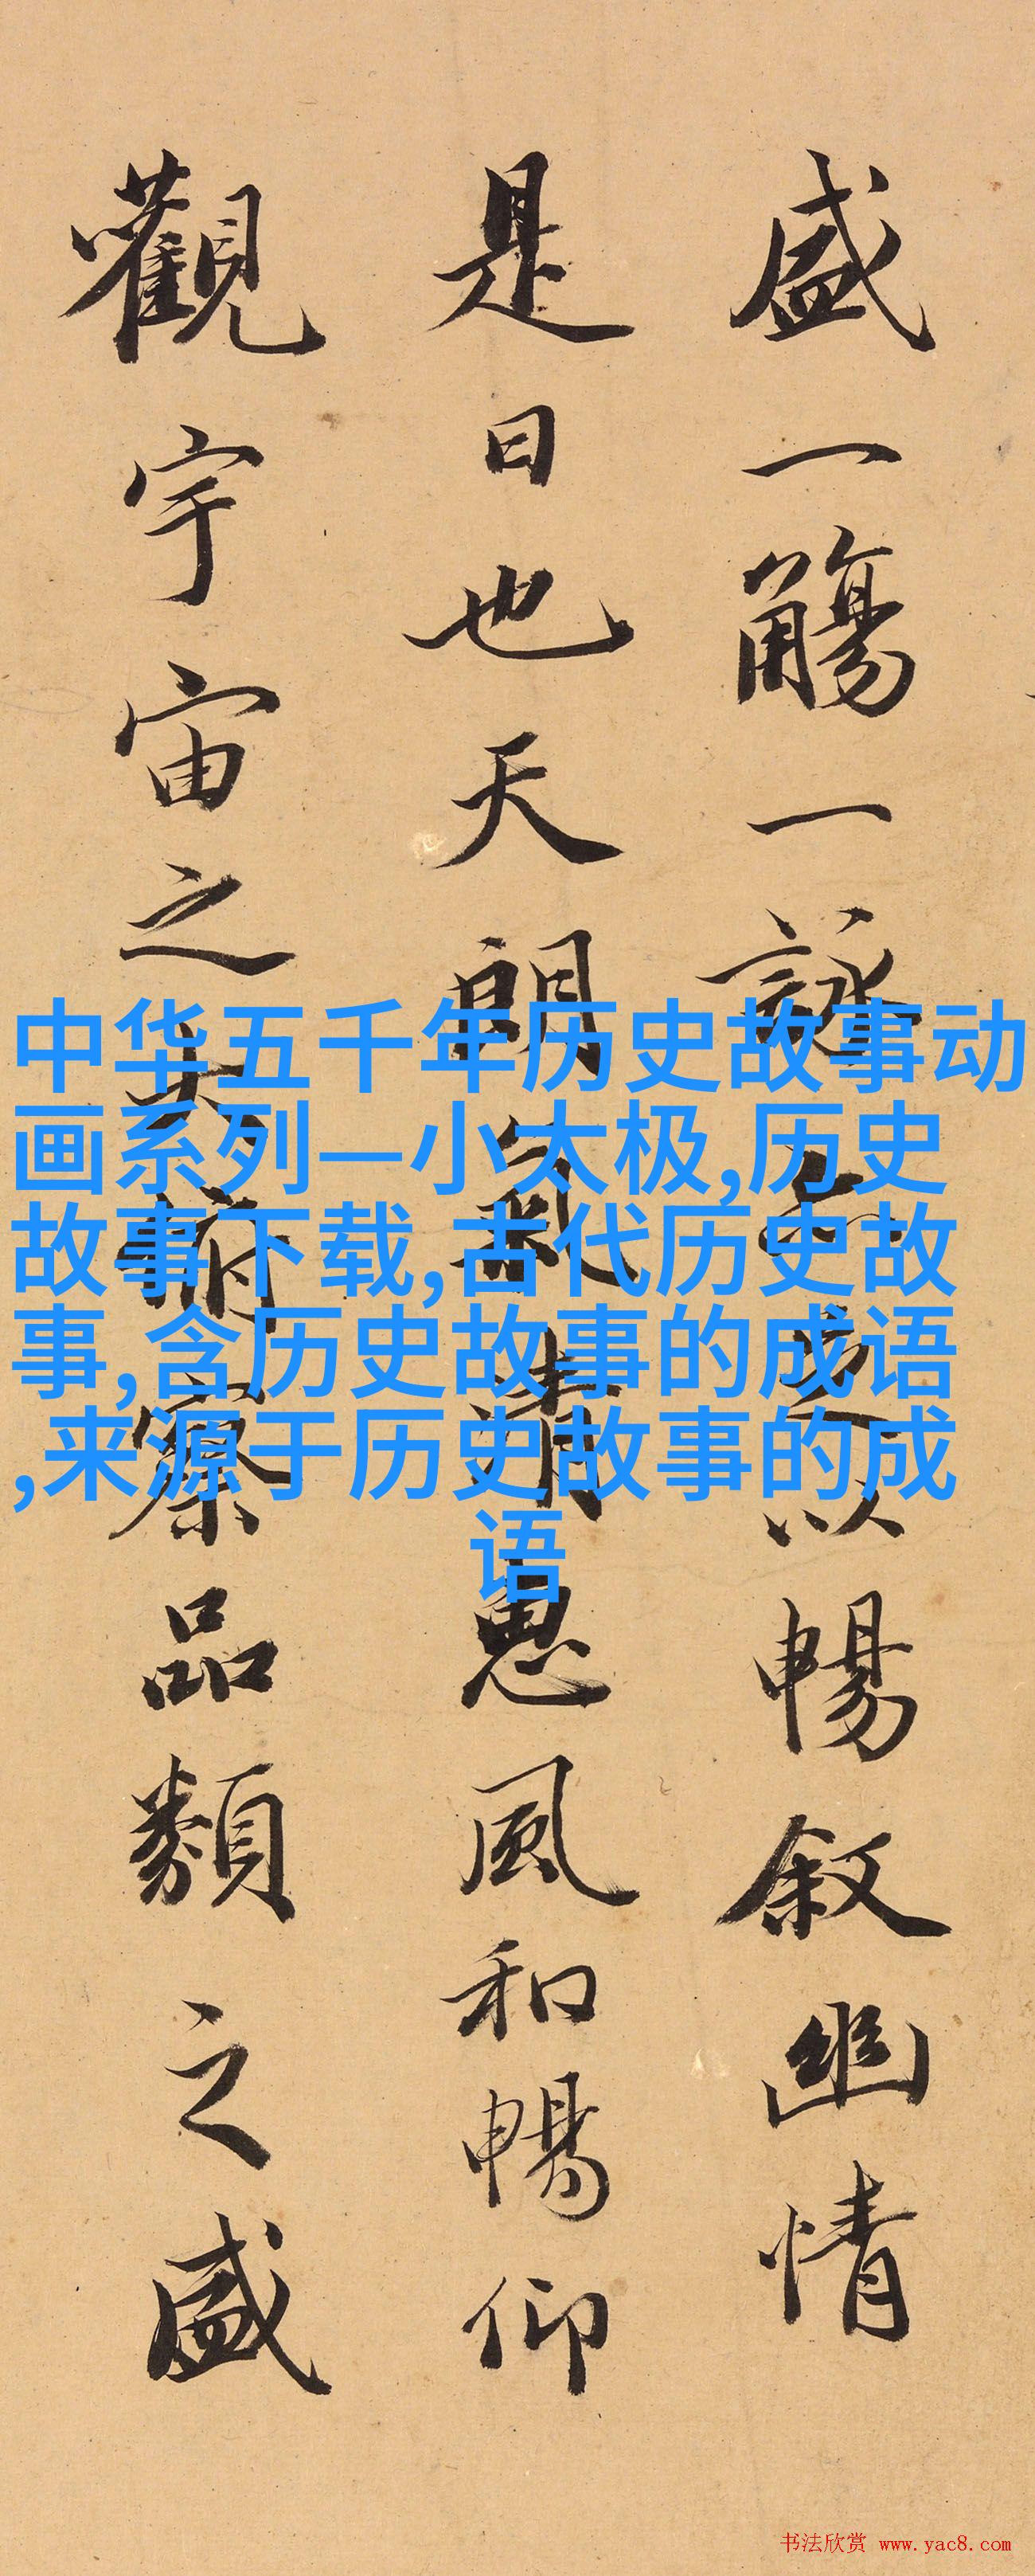 盛一觴一詠亦足以暢叙幽情
是日也天朗氣清惠風和暢仰
觀宇宙之大俯察品類之盛
中华五千年历史故事动
画系列—小太极,历史
故事下载,古代历史故
事,含历史故事的成语
,来源于历史故事的成
语
书法欣赏 www.yac8.com